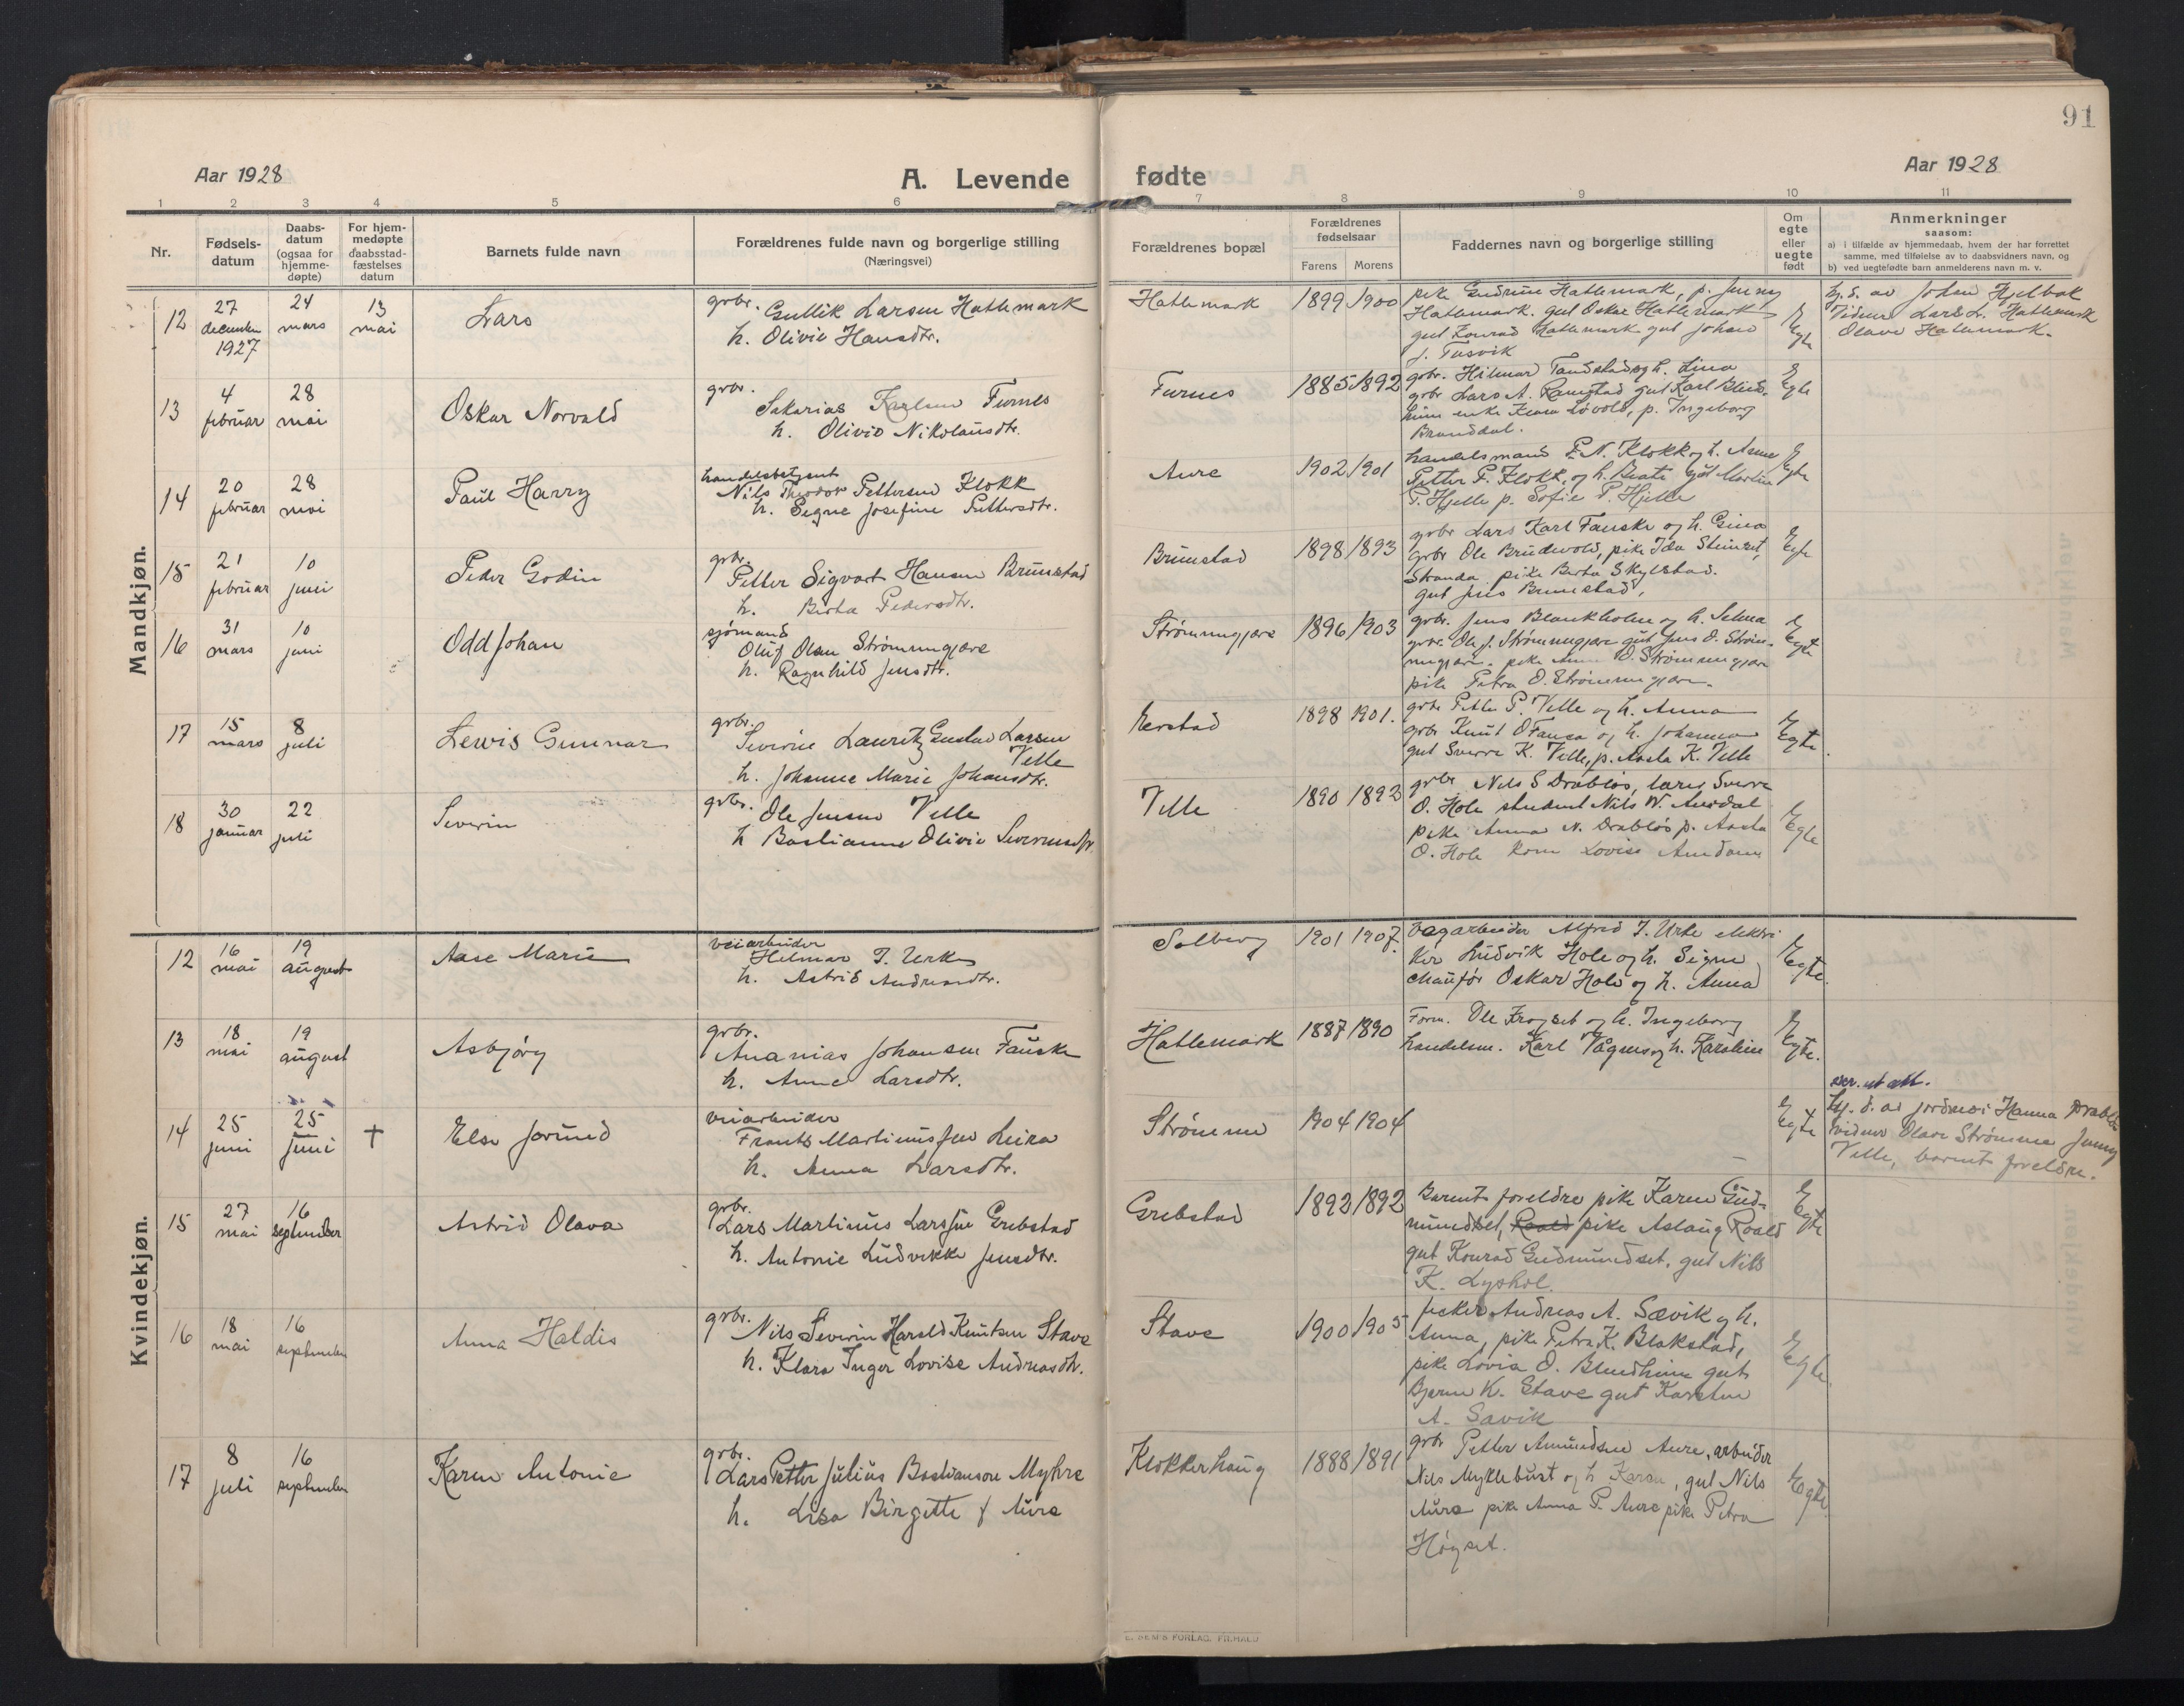 91
Aar 1928
A. Levende fødte
Aar 1928
1 2 3 4 5 6 7 8 9 10 11
Nr.
Fødsels-
datum
Daabs-
datum
(ogsaa for
hjemme-
døpte)
For hjem-
medøpte
daabsstad-
fæstelses
datum
Barnets fulde navn
Forældrenes fulde navn og borgerlige stilling
(Næringsvei)
Forældrenes bopæl
Forældrenes
fødselsaar
Farens Morens
Faddernes navn og borgerlige stilling
Om
egte
eller
uegte
født
Anmerkninger
saasom:
a) i tilfælde av hjemmedaab, hvem der har forrettet
samme, med tilføielse av to daabsvidners navn, og
b) ved uegtefødte barn anmelderens navn m. v.
Mandkjøn.
12
27
december
1927
24
mars
13
mai
Lars
grbr. Gullik Larsen Hatlemark
h. Olivie Hansdtr.
Hatlemark
1899 1900
pike Gudrun Hatlemark, p. Jenny
Hatlemark. gut Oskar Hatlemark
gut Konrad Hatlemark gut Johan
J. Tusvik
Egte
hj. d. av Johan
Vidner Lars L. Hatlemark
Olave Hatlemark.
13
4
februar
28
mai
Oskar Norvald
grbr.
Sakarias Karlsen Furnes
h. Olivie Nikolausdtr.
Furnes
1885 1892
grbr. Hilmar Tandstad og h. Lina
grbr Lars A. Ramstad gut Karl Blind-
heim enke Løvold, p. Ingeborg
Branddal.
Egte
14
20
februar
28
mai
Paul Harry
handelsbetjent
Nils Theodor Pettersen Klokk
h. Signe Josefine Pettersdtr.
Aure
1902 1901
handelsmand P. N. Klokk og h. Anne
Petter P. Klokk, og h. Beate gut Martin
P. Hjelle p. Sofie P. Hjelle
Egte
15
21
februar
10
juni
Peder Godin
grbr.
Petter Sigvart Hansen Brunstad
h. Berta Pedersdtr.
Brunstad
1898 1893
grbr Lars Karl Fauske og h. Gina
grbr Ole Brudevold, pike Ida Steinset,
Stranda pike Berta Skylstad.
gut Jens Brunstad,
Egte
16
31
mars
10
juni
Odd Johan
sjømand
Oluf Olsen Strømmegjære
h. Ragnhild Jensdtr.
Strømmegjære
1896 1903
grbr. Jens Blankholm og h. Selma
grbr. Ole J. Strømmegjære gut Jens O. Strøm-
megjære. pike O. Strømmegjære
pike Petra O. Strømmegjære.
Egte
17
15
mars
8
juli
Lewis Gunnar
grbr.
Severin Lauritz Gustav Larsen
Velle
h. Johanne Marie Johansdtr.
Erstad
1898 1901.
grbr Petter P. Velle og h. Anna
grbr Knut O Fausa og h. Johanna
gut Sverre K. Velle, p. Aasta K. Velle
Egte.
18
30
januar
22
juli
Severin
grbr. Ole Jensen Velle
h Bastianne Olivie Severinsdtr
Velle
1890 1892
grbr. Nils S Drabløs, lærer Sverre
O. Hole student Nils N. Ausdal
pike Anna N. Drabløs p. Aasta
O. Hole kone Lovise Amdam
Egte
Kvindekjøn.
12
16
mai
19
august
Aase Marie
veiarbeider
Hilmar I. Urke
h. Astrid Andreasdtr.
Solberg
1901 1907.
Vegarbeider Alfred I. Urke elektri
ker Ludvik Hole og h. Signe
chaufør Oskar Hole og h. Anna
Egte.
13
18
mai
19
august
Asbjørg
grbr.
Ananias Johansen Fauske
h. Anne Larsdtr.
Hatlemark
1887 1890
Form. Ole Krogset og h. Ingeborg
handelsm. Karl Vågnes og h. Karoline
Egte.
14
25
juni
25
juni
†
Else Jorund
veiarbeider
Frants Martinus Jen Leira
h. Anna Larsdtr.
Strømme
1904 1904
Egte
utatt.
Hj. d. av jordmor Hanna Drabløs
vidner Olave Strømme Jenny
Velle, barnets foreldre.
15
27
mai
16
september
Astrid Olava
grbr.
Lars Martinus Larssen Grebstad
h. Antonie Ludvikke Jensdtr.
Grebstad
1892 1892
Barnets foreldre pike Karen Gud-
mundset, Roald pike Aslaug Roald
gut Konrad Gudmundset, gut Nils
K. Lyshol
Egte
16
18
mai
16
september
Anna Haldis
grbr.
Nils Severin Harald Knutsen Stave
h. Klara Inger Lovise Andreasdtr.
Stave
1900 1905
fisker Andreas A. Sævik og h.
Anna, pike Petra K. Blakstad,
pike Lovia O. Blindheim gut
Bjarne K. Stave gut Karsten
A. Sævik
Egte.
17
8
juli
16
september
Karen Antonie
grbr.
Lars Petter Julius Bastianson Myhre
h. Lisa Birgitte f Aure
Klokkerhaug
1888 1891
grbr Petter Amundsen Aure, arbeider
Nils Myklebust og h Karen, gut Nils
Aure pike Anna P. Aure pike Petra
Høgset.
Egte.
E. SEM'S FORLAG. FR.HALD